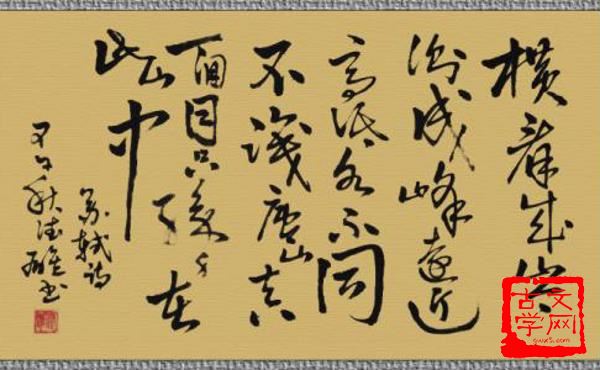 横看成岭
侧成峰遠近
高低各不同
不識庐山真
面目只缘身在
此山中
苏轼诗
午秋
书
古文
学网